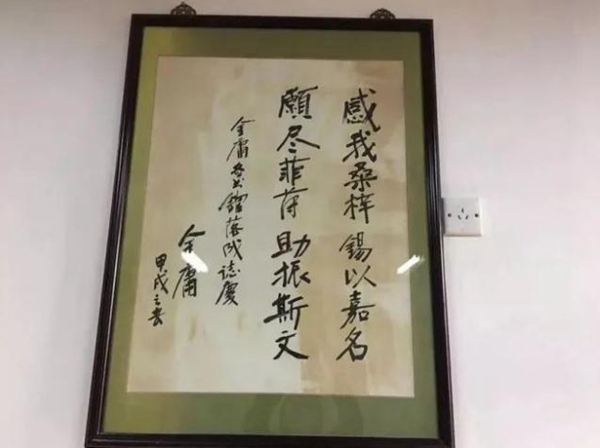 感我桑梓錫以嘉名
願尽菲薄助振斯文
金庸图书館落成誌慶
金庸
甲戌之春